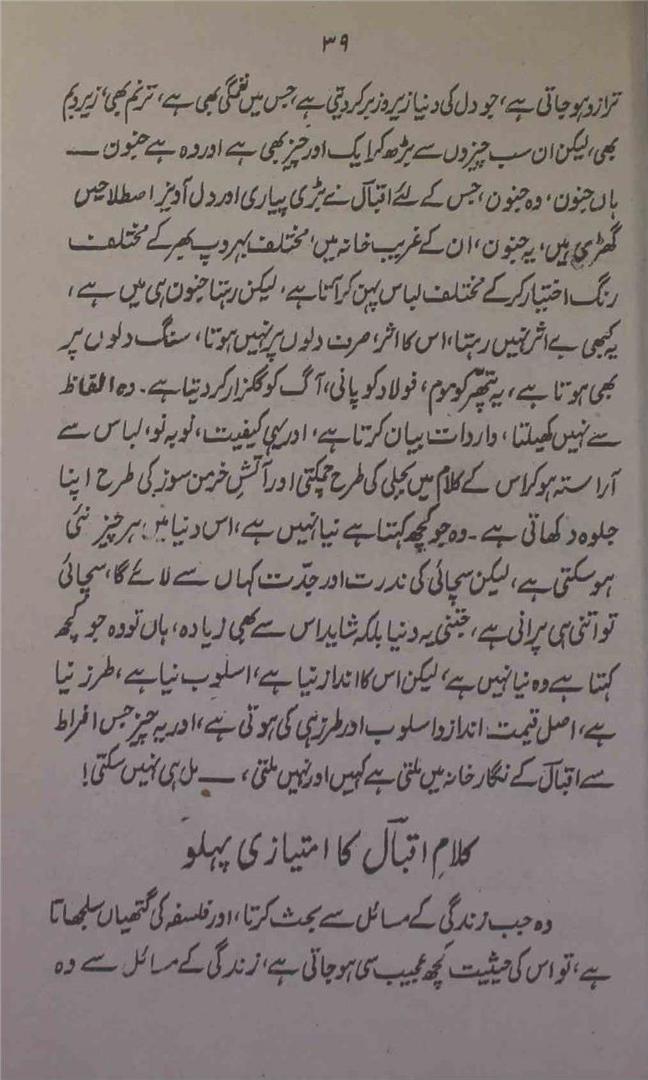 ۳۹
ترازو ہو جاتی ہے، جو دل کی دنیا زیر و زبر کر دیتی ہے، جس میں نغمگی بھی ہے، ترنم بھی، زیر و بم
بھی، لیکن ان سب چیزوں سے بڑھ کر ایک اور چیز بھی ہے اور وہ ہے جنون ـــ
ہاں جنون، وہ جنون، جس کے لئے اقبالؔ نے بڑی پیاری اور دل آویز اصطلاحیں
گھڑی ہیں، یہ جنون، ان کے غریب خانہ میں، مختلف بہروپ بھر کے مختلف
رنگ اختیار کر کے مختلف لباس پہن کر آتا ہے، لیکن رہتا جنون ہی میں ہے،
یہ کبھی بے اثر نہیں رہتا، اس کا اثر، صرف دلوں پر نہیں ہوتا، سنگ دلوں پر
بھی ہوتا ہے، یہ پتھر کو موم، فولاد کو پانی، آگ کو گلزار کر دیتا ہے۔ وہ الفاظ
سے نہیں کھیلتا، واردات بیان کرتا ہے، اور یہی کیفیت، نو بہ نو، لباس سے
آراستہ ہو کر اس کے کلام میں بجلی کی طرح چمکتی اور آتشِ خرمن سوز کی طرح اپنا
جلوہ دکھاتی ہے۔ وہ جو کچھ کہتا ہے نیا نہیں ہے، اس دنیا میں ہر چیز نئی
ہو سکتی ہے، لیکن سچائی کی ندرت اور جدّت کہاں سے لائے گا، سچائی
تو اتنی ہی پرانی ہے، جتنی یہ دنیا بلکہ شاید اس سے بھی زیادہ، ہاں تو وہ جو کچھ
کہتا ہے وہ نیا نہیں ہے، لیکن اس کا انداز نیا ہے، اسلوب نیا ہے، طرز نیا
ہے، اصل قیمت انداز و اسلوب اور طرز ہی کی ہوتی ہے، اور یہ چیز جس افراط
سے اقبالؔ کے نگار خانہ میں ملتی ہے کہیں اور نہیں ملتی، ـــ مل ہی نہیں سکتی!
کلامِ اقبالؔ کا امتیازی پہلو
وہ جب زندگی کے مسائل سے بحث کرتا، اور فلسفہ کی گتھیاں سلجھاتا
ہے، تو اس کی حیثیت کچھ عجیب سی ہو جاتی ہے، زندگی کے مسائل سے وہ